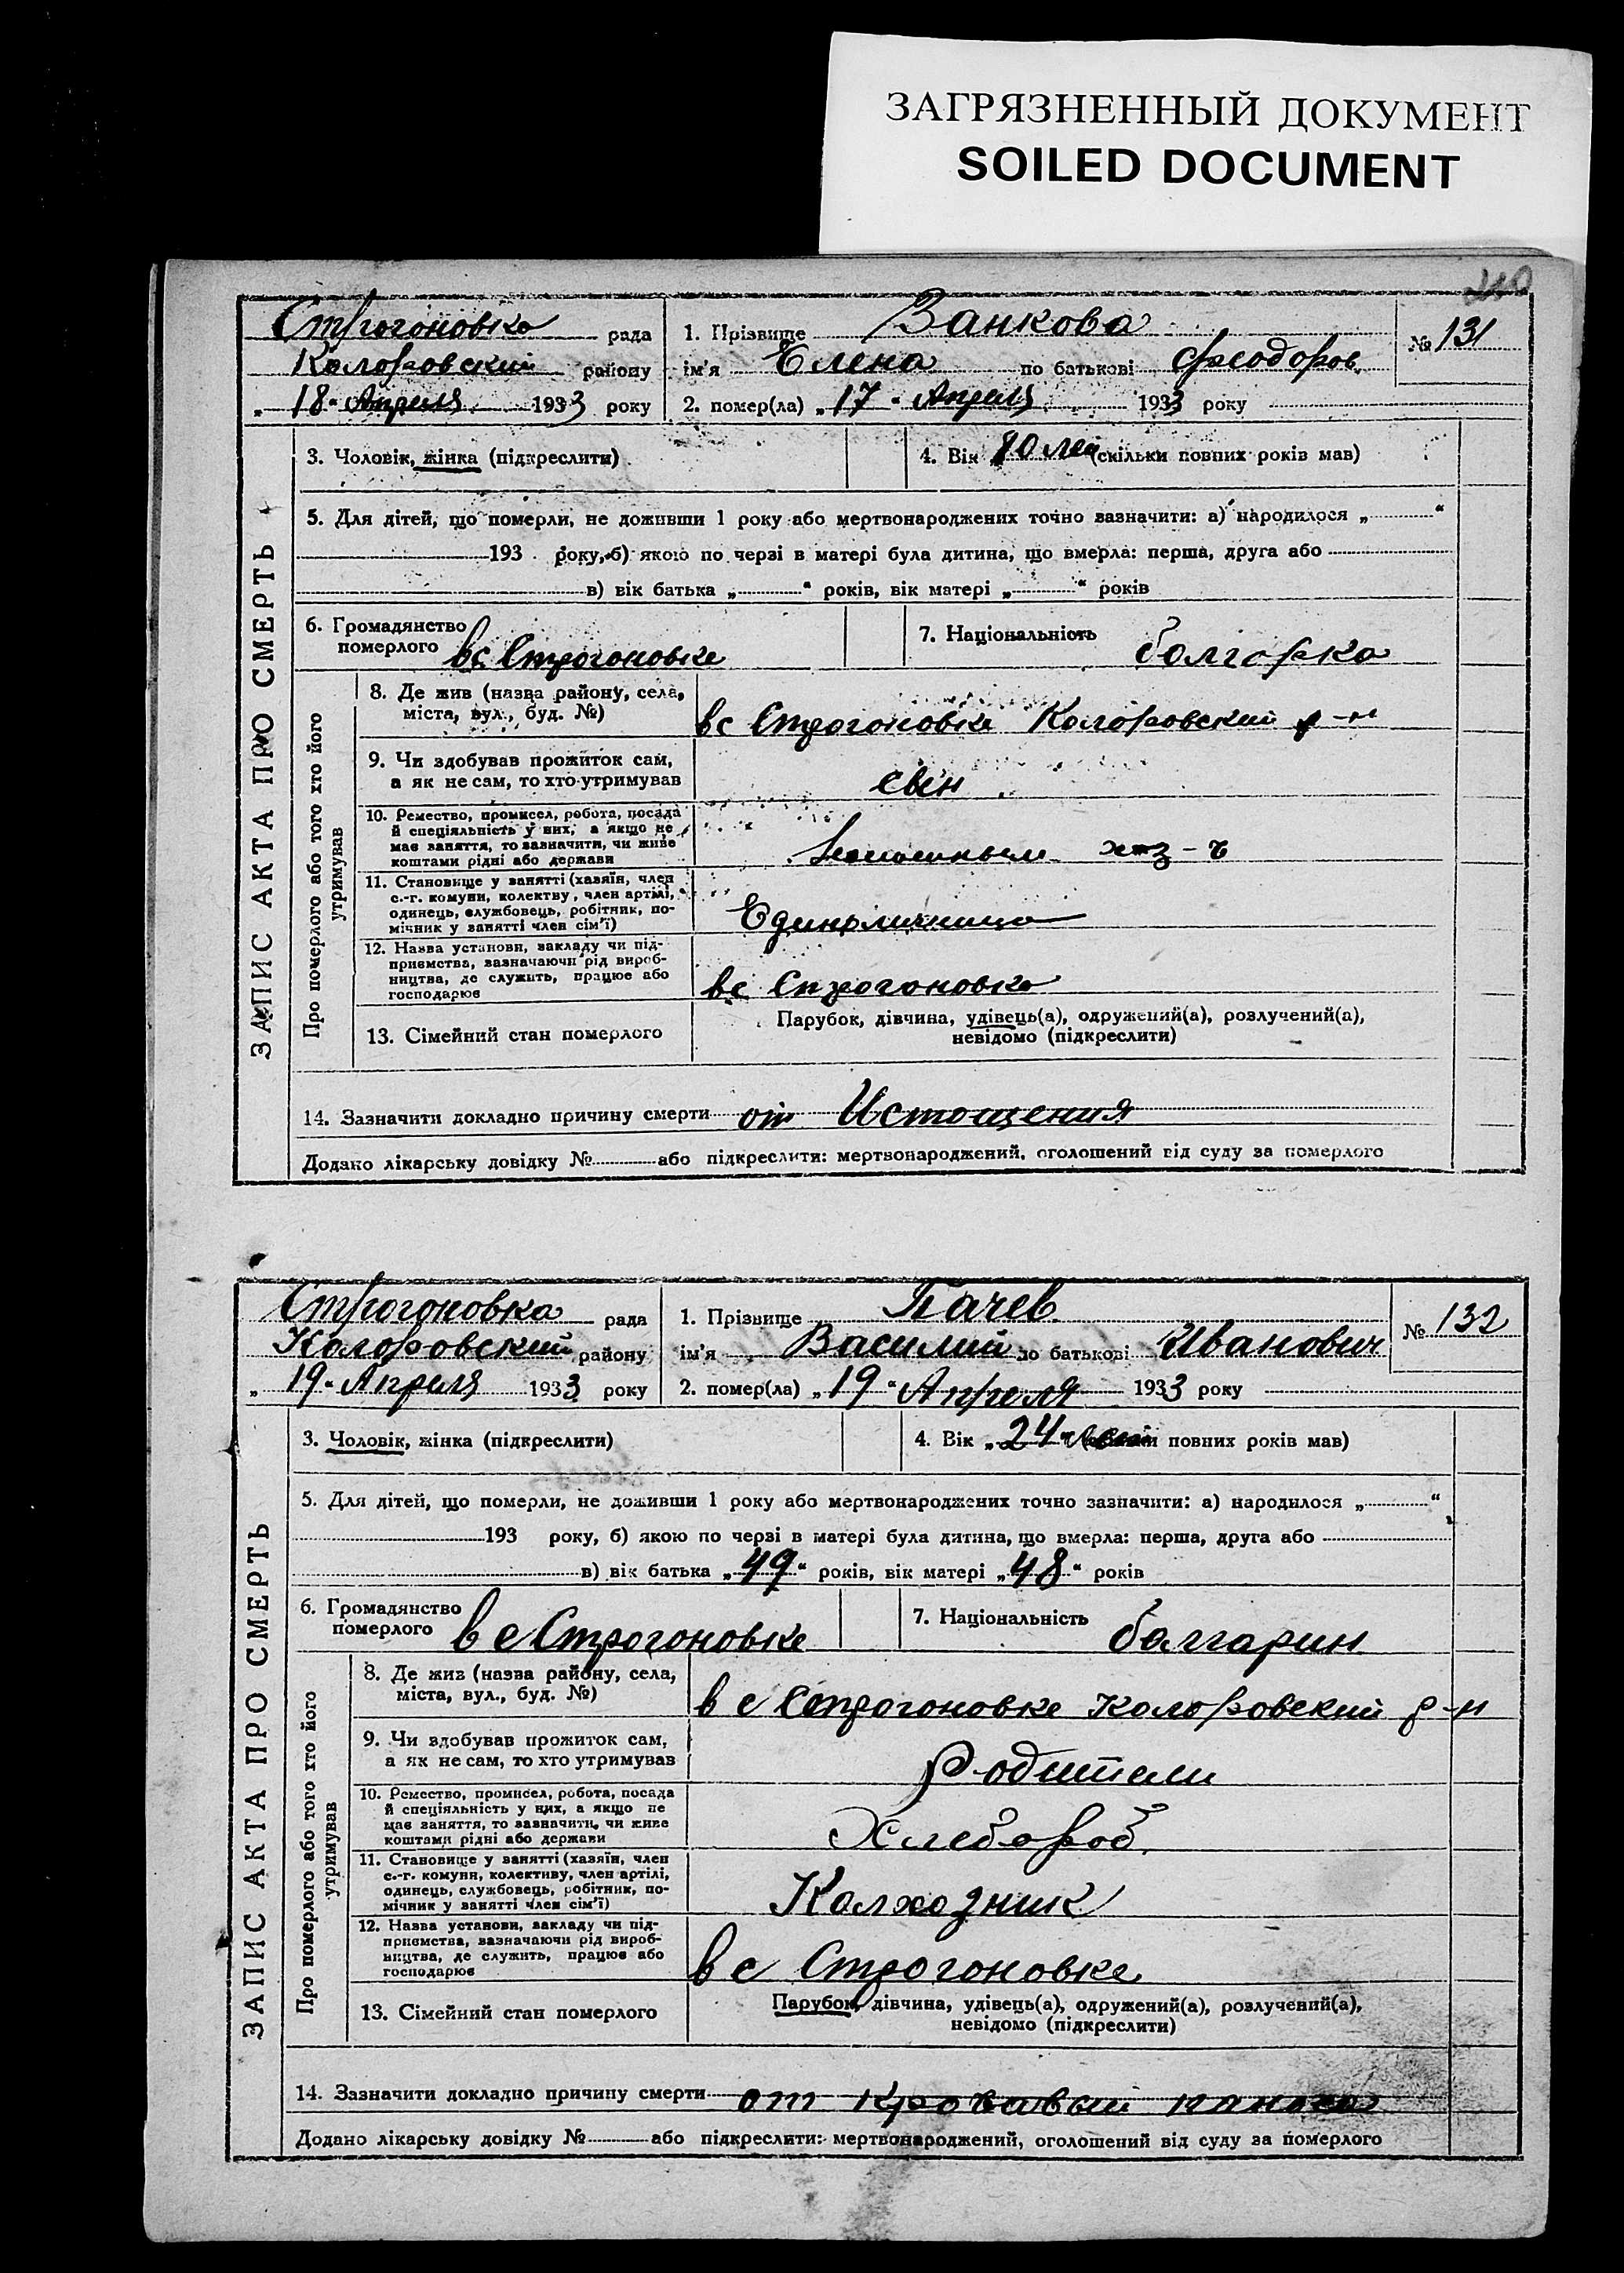 ЗАГРЯЗНЕННЫЙ ДОКУМЕНТ
SOILED DOCUMENT
ЗАПИС АКТА ПРО СМЕРТЬ
Строгоновка рада
Коларовский району
„18“ Апреля 1933 року
1. Прізвище Ванкова
№ 131
ім'я Елена по батькові Феодоров.
2. помер(ла) „17“ Апреля 1933 року
3. Чоловік, жінка (підкреслити)
4. Вік 80 лет (скільки повних років мав)
5. Для дітей, що померли, не доживши 1 року або мертвонароджених точно зазначити: а) народилося „ “
193 року, б) якою по черзі в матері була дитина, що вмерла: перша, друга або
в) вік батька „ “ років, вік матері „ “ років
6. Громадянство
померлого в с. Строгоновке
7. Національність болгорка
Про померлого або того хто його
утримував
8. Де жив (назва району, села,
міста, вул., буд. №)
в с Строгоновке Колоровский р-н
9. Чи здобував прожиток сам,
а як не сам, то хто утримував
сын
10. Ремество, промисел, робота, посада
й спеціяльність у них, а якщо не
має заняття, то зазначити, чи живе
коштами рідні або держави
11. Становище у занятті (хазяїн, член
с.-г. комуни, колективу, член артілі,
одинець, службовець, робітник, по-
мічник у занятті член сім'ї)
Единоличница
12. Назва установи, закладу чи під-
приємства, зазначаючи рід вироб-
ництва, де служить, працює або
господарює
в с. Строгоновке
13. Сімейний стан померлого
Парубок, дівчина, удівець(а), одружений(а), розлучений(а),
невідомо (підкреслити)
14. Зазначити докладно причину смерти от Истощения
Додано лікарську довідку № або підкреслити: мертвонароджений, оголошений від суду за померлого
ЗАПИС АКТА ПРО СМЕРТЬ
Строгоновка рада
Колоровский району
„19“ Апреля 1933 року
1. Прізвище Пачев
№ 132
ім'я Василий по батькові Иванович
2. помер(ла) „19“ Апреля 1933 року
3. Чоловік, жінка (підкреслити)
4. Вік „24“ лет повних років мав)
5. Для дітей, що померли, не доживши 1 року або мертвонароджених точно зазначити: а) народилося „ “
193 року, б) якою по черзі в матері була дитина, що вмерла: перша, друга або
в) вік батька „49“ років, вік матері „48“ років
6. Громадянство
померлого в с Строгоновке
7. Національність болгарин
Про померлого або того хто його
утримував
8. Де жив (назва району, села,
міста, вул., буд. №)
в с Строгоновке Колоровский р-н
9. Чи здобував прожиток сам,
а як не сам, то хто утримував
Родители
10. Ремество, промисел, робота, посада
й спеціяльність у них, а якщо не
має заняття, то зазначити, чи живе
коштами рідні або держави
Хлебороб
11. Становище у занятті (хазяїн, член
с.-г. комуни, колективу, член артілі,
одинець, службовець, робітник, по-
мічник у занятті член сім'ї)
Колхозник
12. Назва установи, закладу чи під-
приємства, зазначаючи рід вироб-
ництва, де служить, працює або
господарює
в с Строгоновке
13. Сімейний стан померлого
Парубок, дівчина, удівець(а), одружений(а), розлучений(а),
невідомо (підкреслити)
14. Зазначити докладно причину смерти от кровавый поноса
Додано лікарську довідку № або підкреслити: мертвонароджений, оголошений від суду за померлого